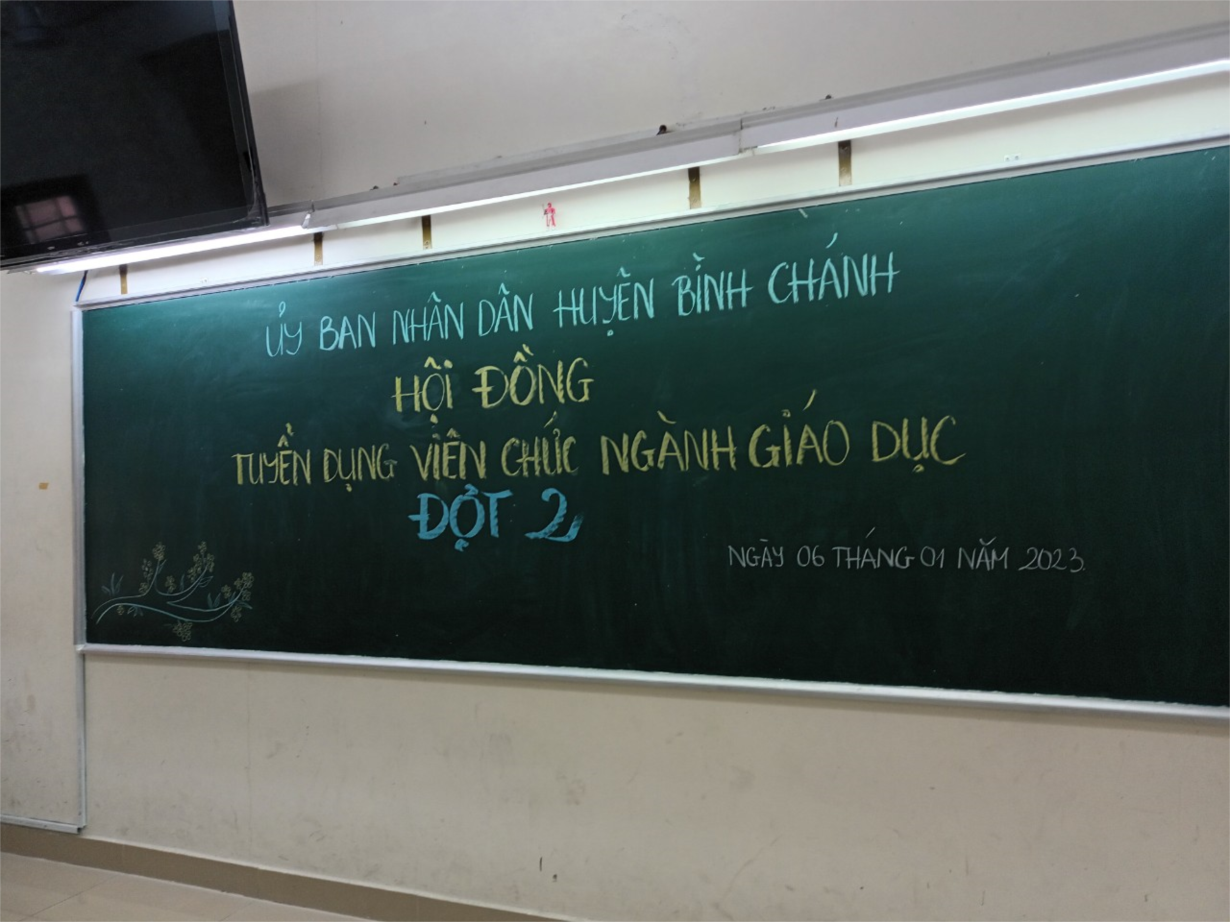 ỦY BAN NHÂN DÂN HUYỆN BÌNH CHÁNH
HỘI ĐỒNG
TUYỂN DỤNG VIÊN CHỨC NGÀNH GIÁO DỤC
ĐỢT 2
NGÀY 06 THÁNG 01 NĂM 2023